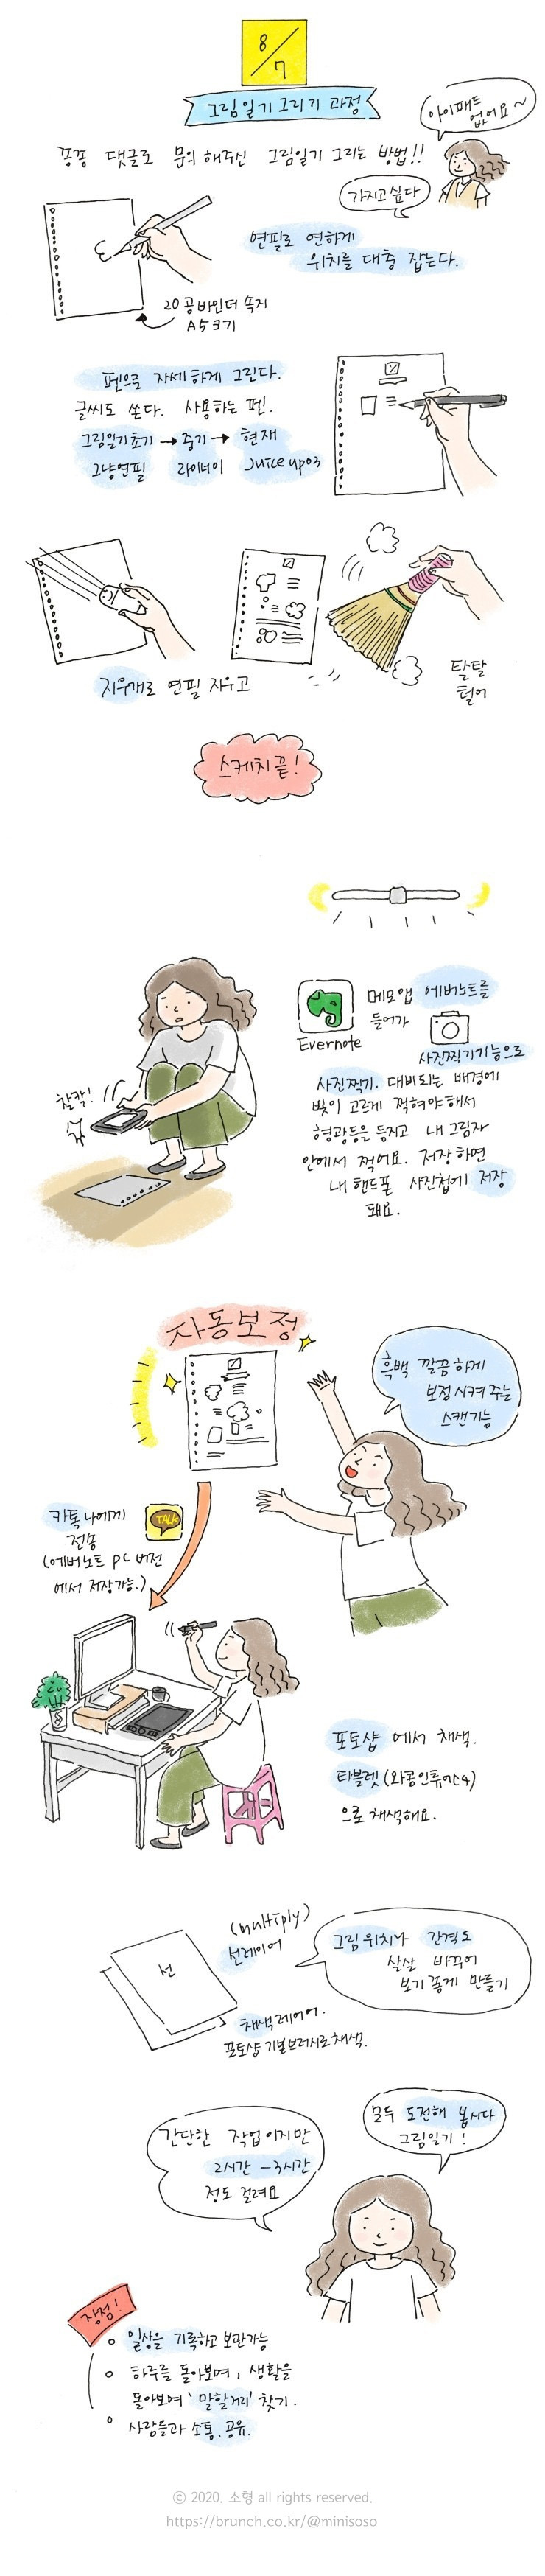 8/7
그림일기 그리기 과정
아이패드
없어요~
종종 댓글로 문의 해주신 그림일기 그리는 방법!!
가지고싶다
연필로 연하게
위치를 대충 잡는다.
20공 바인더 속지
A5 크기
펜으로 자세하게 그린다.
글씨도 쓴다. 사용하는 펜.
그림일기 초기 → 중기 → 현재
그냥연필 라이너이 Juice up 03
지우개로 연필 지우고
탈탈
털어
스케치 끝!
메모앱 에버노트를
들어가
Evernote
사진찍기기능으로
찰칵!
사진찍기. 대비되는 배경에
빛이 고르게 찍혀야해서
형광등을 등지고 내 그림자
안에서 찍어요. 저장하면
내 핸드폰 사진첩에 저장
돼요.
자동보정
흑백 깔끔하게
보정시켜 주는
스캔기능
카톡 나에게
전송
TALK
(에버노트 PC 버전
에서 저장가능.)
포토샵 에서 채색.
타블렛 (와콤인튜어스4)
으로 채색해요.
(multiply)
선레이어
선
그림 위치나 간격도
살살 바꾸어
보기 좋게 만들기
채색레이어.
포토샵 기본브러시로 채색.
모두 도전해 봅시다
그림일기!
간단한 작업이지만
2시간 – 3시간
정도 걸려요
장점!
일상을 기록하고 보관가능
하루를 돌아보며, 생활을
돌아보며 '말할거리' 찾기.
사람들과 소통, 공유.
ⓒ 2020. 소형 all rights reserved.
https://brunch.co.kr/@minisoso